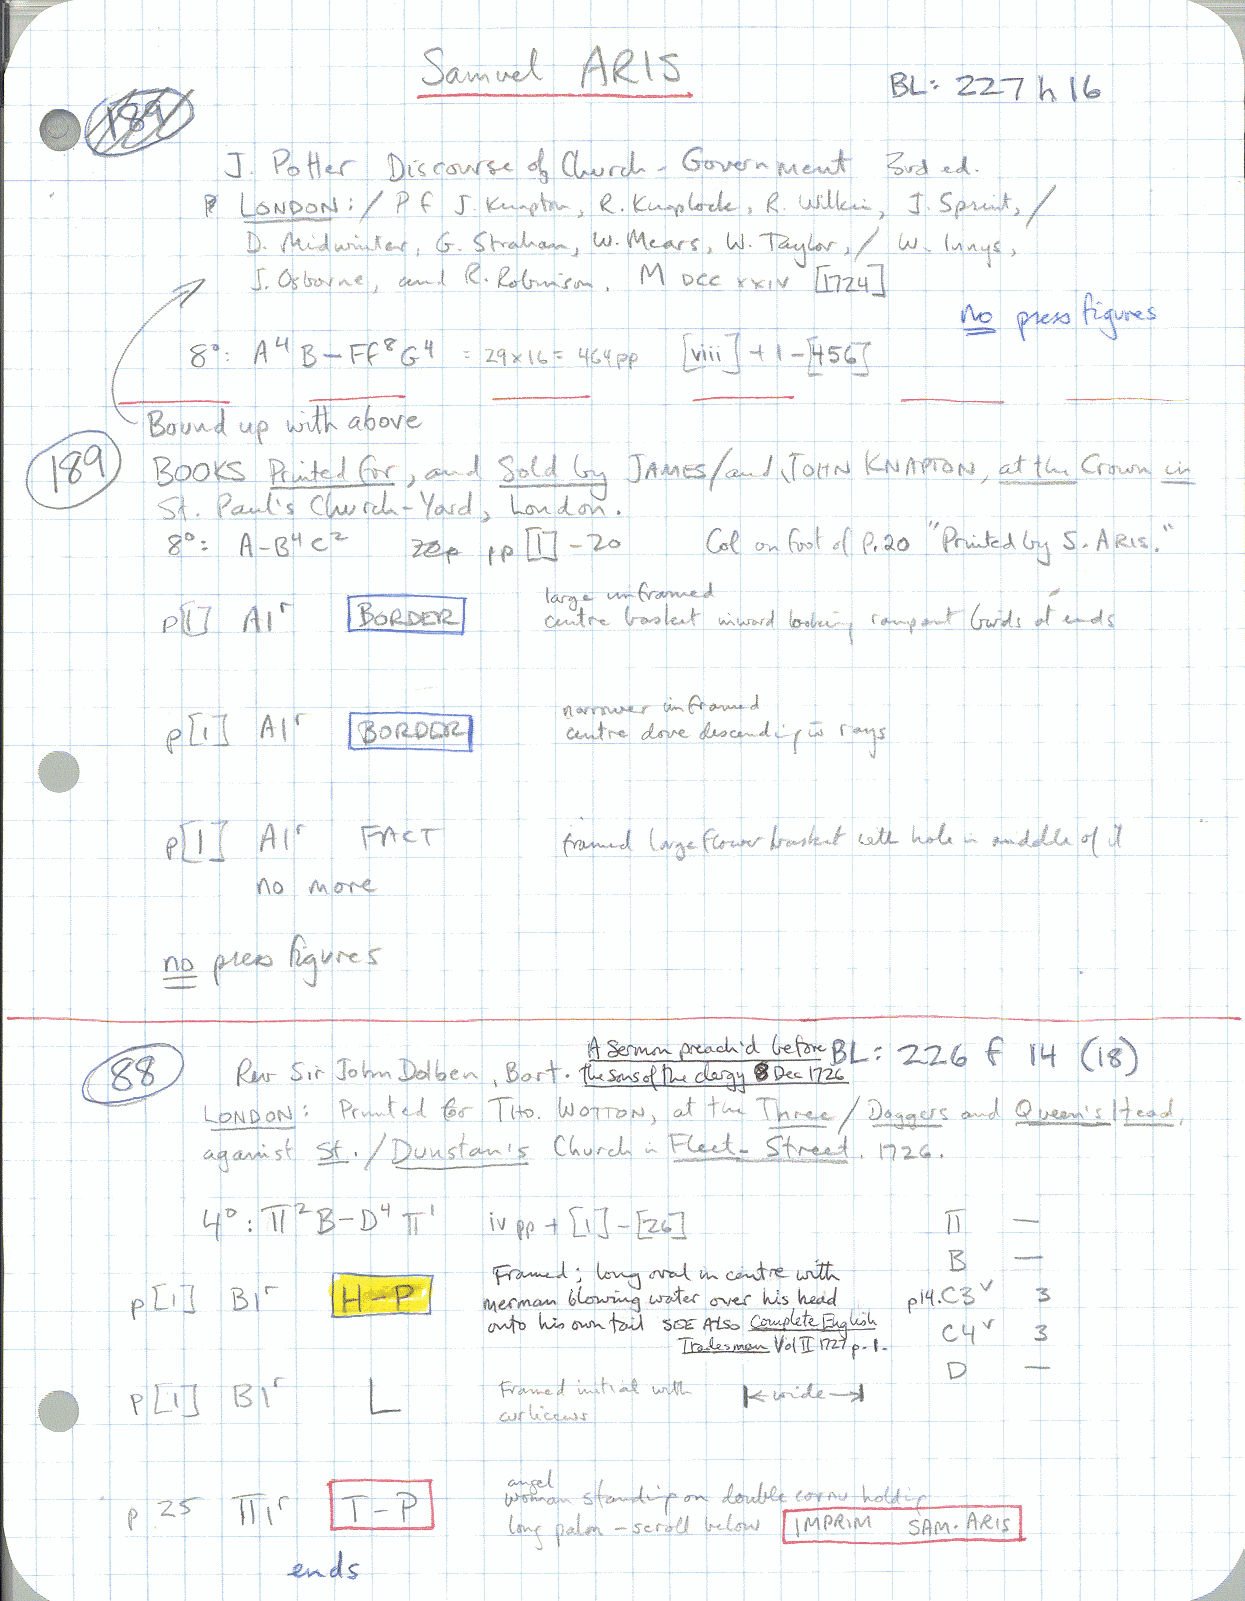 Samuel ARIS
BL: 227 h 16
189
J. Potter Discourse of Church-Government 3rd ed.
LONDON: / P f J. Knapton, R. Knaplock, R. Wilkin, J. Sprint, /
D. Midwinter, G. Strahan, W. Mears, W. Taylor, / W. Innys,
J. Osborne, and R. Robinson. M DCC XXIV [1724]
no press figures
8°: A⁴ B-Ff⁸ G⁴ = 29x16 = 464pp [viii] + 1-[456]
Bound up with above
189
BOOKS Printed for, and Sold by JAMES / and JOHN KNAPTON, at the Crown in
St. Paul's Church-Yard, London.
8°: A-B⁴ C² pp [1]-20 Col on foot of p.20 "Printed by S. ARIS."
p[1] A1ʳ BORDER large unframed
centre basket inward looking rampant birds at ends
p[1] A1ʳ BORDER narrower unframed
centre dove descending in rays
p[1] A1ʳ FACT framed large flower basket with hole in middle of it
no more
no press figures
88
Rev Sir John Dolben, Bart. A Sermon preach'd before
the sons of the clergy 8 Dec 1726
BL: 226 f 14 (18)
LONDON: Printed for THO. WOTTON, at the Three / Daggers and Queen's Head,
against St. / Dunstan's Church in Fleet-Street. 1726.
4°: π² B-D⁴ π¹ iv pp + [1]-[26]
π —
B —
p14. C3ᵛ 3
C4ᵛ 3
D —
p[1] B1ʳ H-P Framed; long oval in centre with
merman blowing water over his head
onto his own tail SEE ALSO Complete English
Tradesman Vol II 1727 p.1.
p[1] B1ʳ L Framed initial with
curlicews
|←wide→|
p 25 π1ʳ T-P angel
woman standing on double cornu holding
long palm - scroll below IMPRIM SAM. ARIS
ends